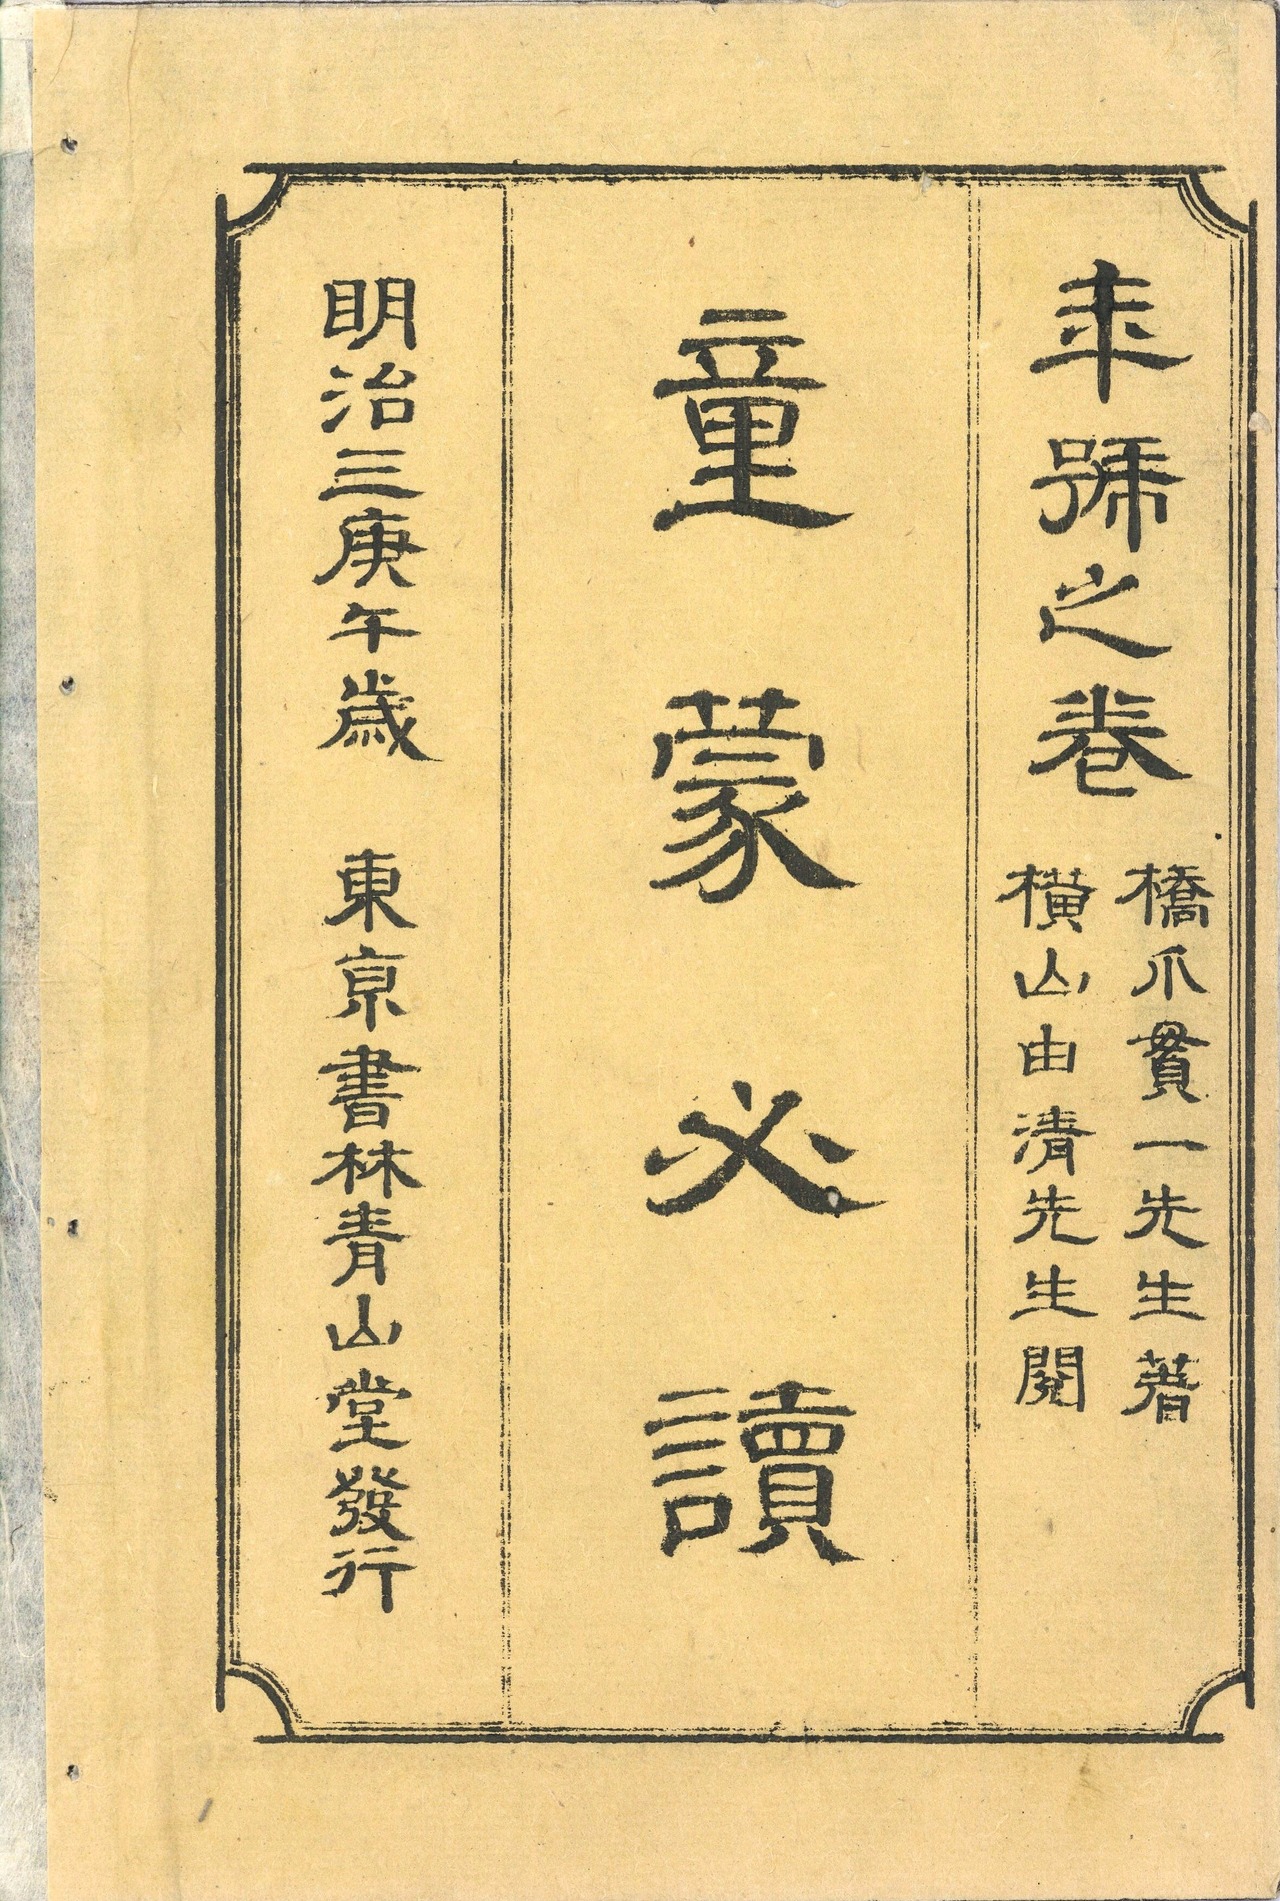 年號之卷
橋爪貫一先生著
横山由清先生閲
童蒙必讀
明治三庚午歳 東京書林青山堂發行